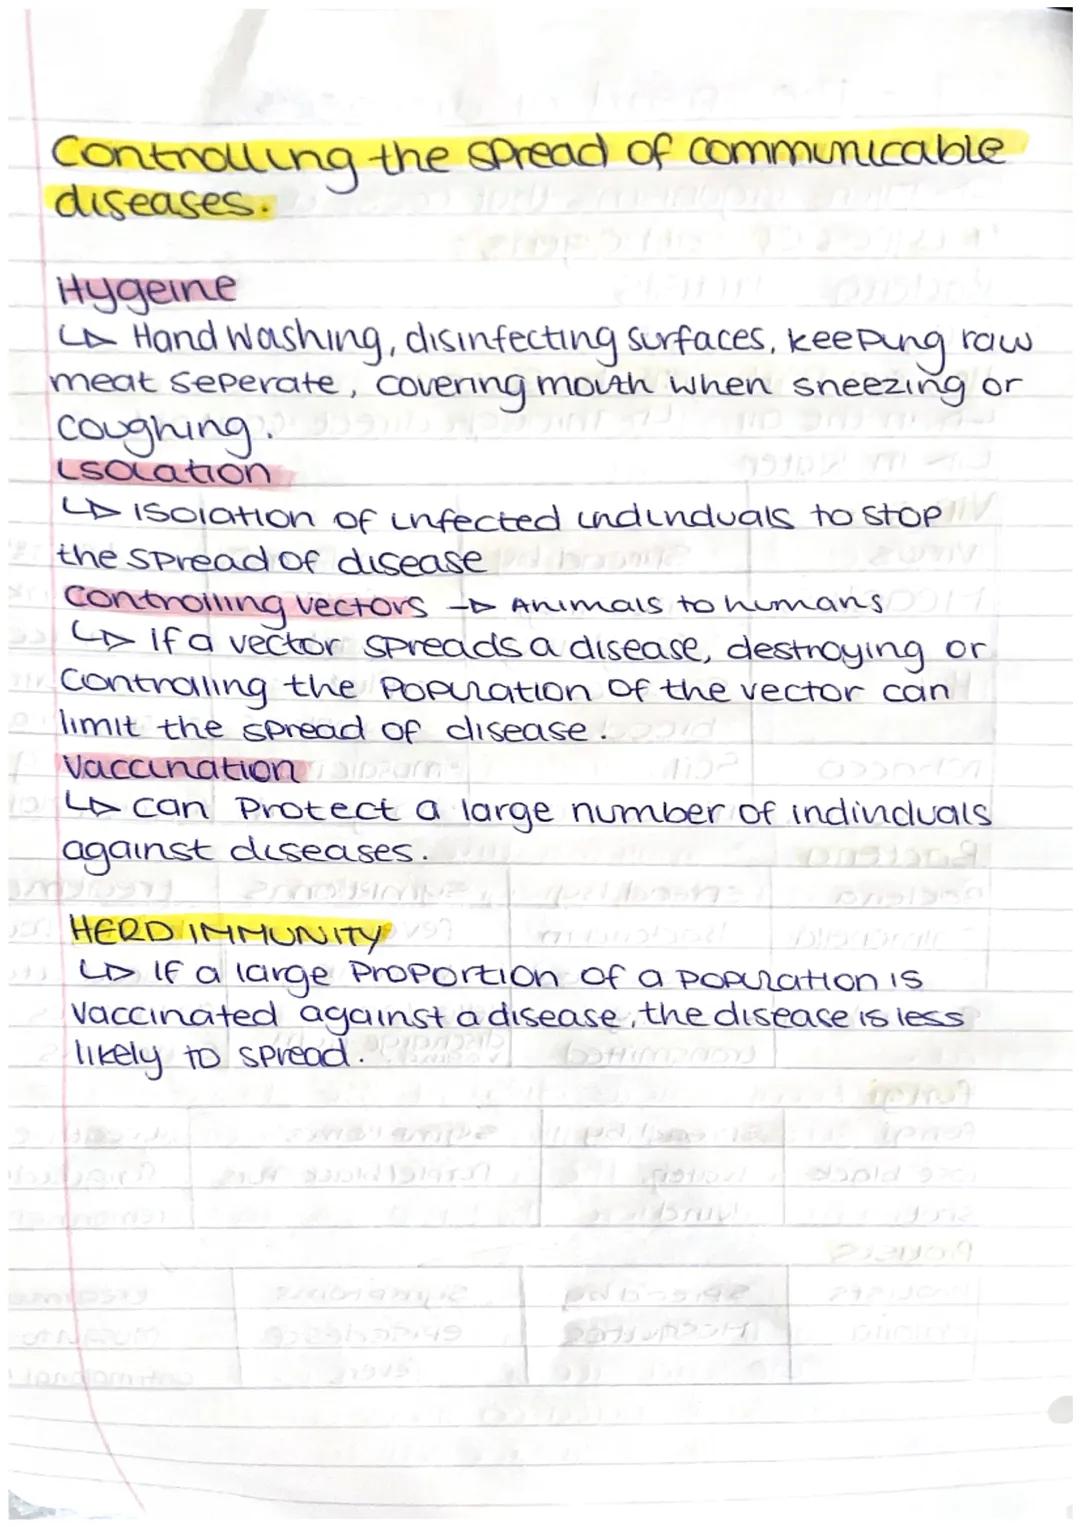 Controlling the spread of communicable
diseases.
Hygeine
↳ Hand Washing, disinfecting surfaces, keeping raw
meat seperate, covering mouth when sneezing or
coughing.
Isolation
↳ isolation of infected individuals to stop
the spread of disease
Controlling vectors → Animals to humans
↳ if a vector spreads a disease, destroying or
controlling the population of the vector can
limit the spread of disease.
Vaccination
↳ can protect a large number of individuals
against diseases.
HERD IMMUNITY
↳ If a large proportion of a population is
vaccinated against a disease, the disease is less
likely to spread.